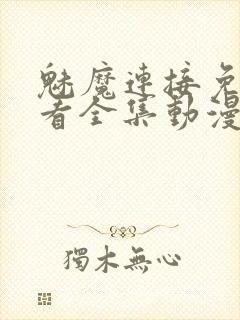 魅魔連接免
看全集動漫
獨木無心